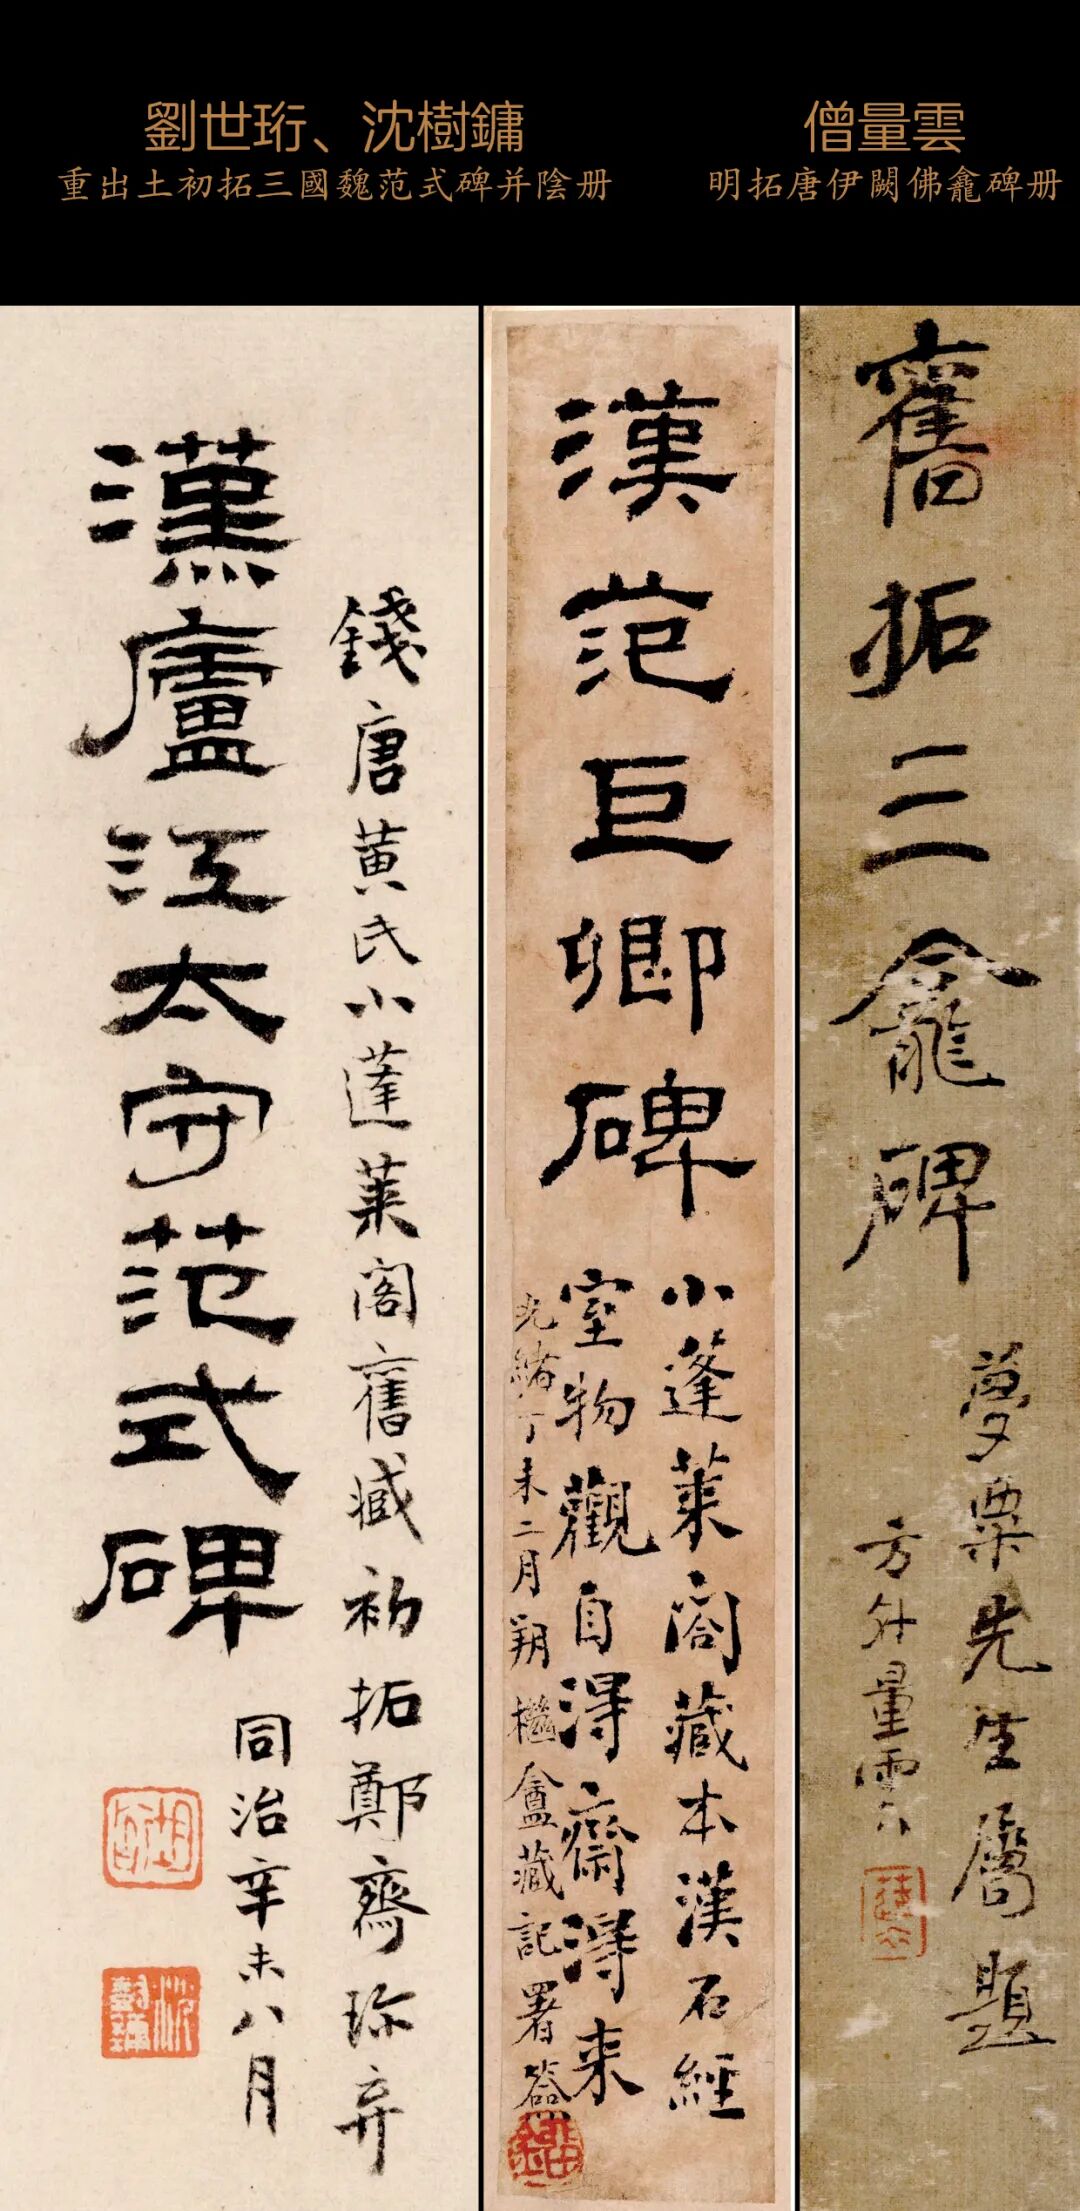 劉世珩、沈樹鏞
重出土初拓三國魏范式碑并陰册
僧量雲
明拓唐伊闕佛龕碑册
舊拓三龕碑
夢粟先生屬題
方外量雲
漢范巨卿碑
小蓬萊閣藏本漢石經
室物觀自得齋得来
光緒丁未二月朔檵盦藏記署簽
錢唐黄氏小蓬萊閣舊臧初拓鄭齋珎弆
漢廬江太守范式碑
同治辛未八月